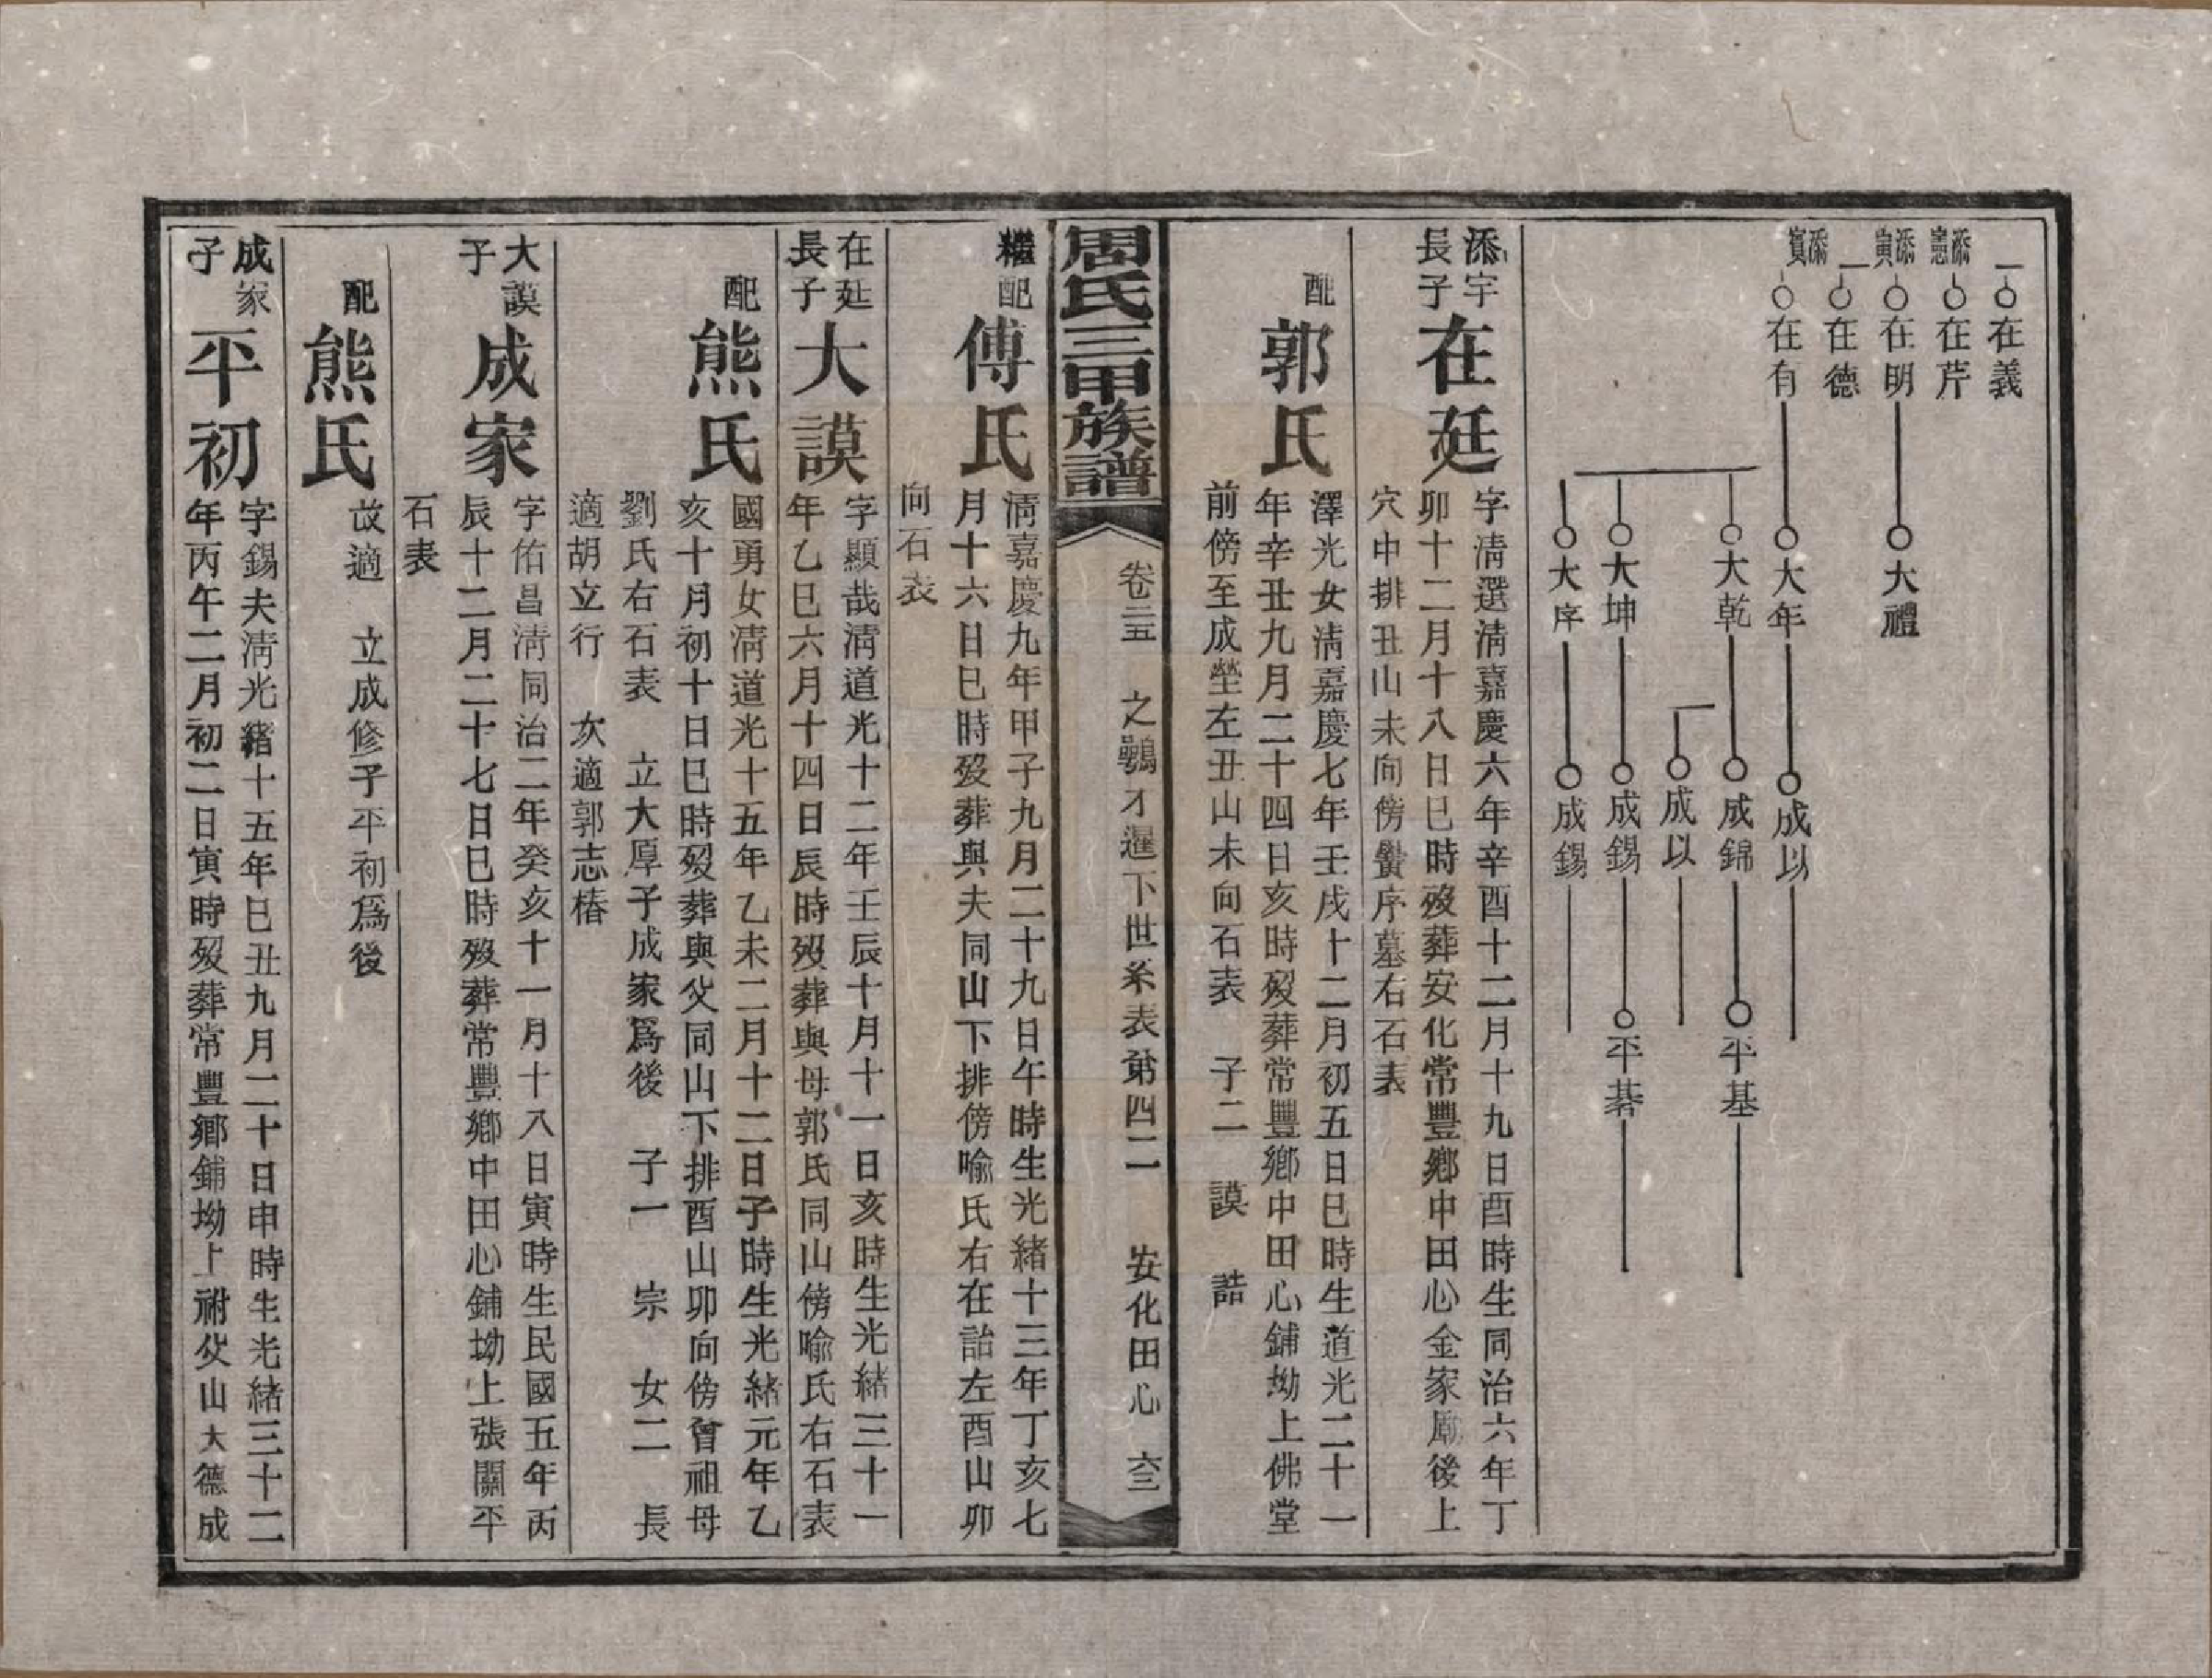 在義
添憲
在芹
添寅
在明
大禮
在德
添賓
在有
大年
成以
大乾
成錦
平基
成以
大坤
成錫
平碁
大序
成錫
添宇長子
在廷
字清選清嘉慶六年辛酉十二月十九日酉時生同治六年丁
卯十二月十八日巳時歿葬安化常豐鄉中田心金家廊後上
穴中排丑山未向傍黌序墓右石表
配
郭氏
澤光女清嘉慶七年壬戌十二月初五日巳時生道光二十一
年辛丑九月二十四日亥時歿葬常豐鄉中田心鋪坳上佛堂
前傍至成塋左丑山未向石表 子二 謨 誥
周氏三甲族譜
卷三五 之鶚才暹下世系表第四二 安化田心 六三
繼配
傅氏
清嘉慶九年甲子九月二十九日午時生光緒十三年丁亥七
月十六日巳時歿葬與夫同山下排傍喻氏右在詒左酉山卯
向石表
在廷長子
大謨
字顯哉清道光十二年壬辰十月十一日亥時生光緒三十一
年乙巳六月十四日辰時歿葬與母郭氏同山傍喻氏右石表
配
熊氏
國勇女清道光十五年乙未二月十二日子時生光緒元年乙
亥十月初十日巳時歿葬與父同山下排酉山卯向傍曾祖母
劉氏右石表 立大厚子成家爲後 子一 宗 女二 長
適胡立行 次適郭志椿
大謨子
成家
字佑昌清同治二年癸亥十一月十八日寅時生民國五年丙
辰十二月二十七日巳時歿葬常豐鄉中田心鋪坳上張關平
石表
配
熊氏
故適 立成修子平初爲後
成家子
平初
字錫夫清光緒十五年己丑九月二十日申時生光緒三十二
年丙午二月初二日寅時歿葬常豐鄉鋪坳上祔父山大德成